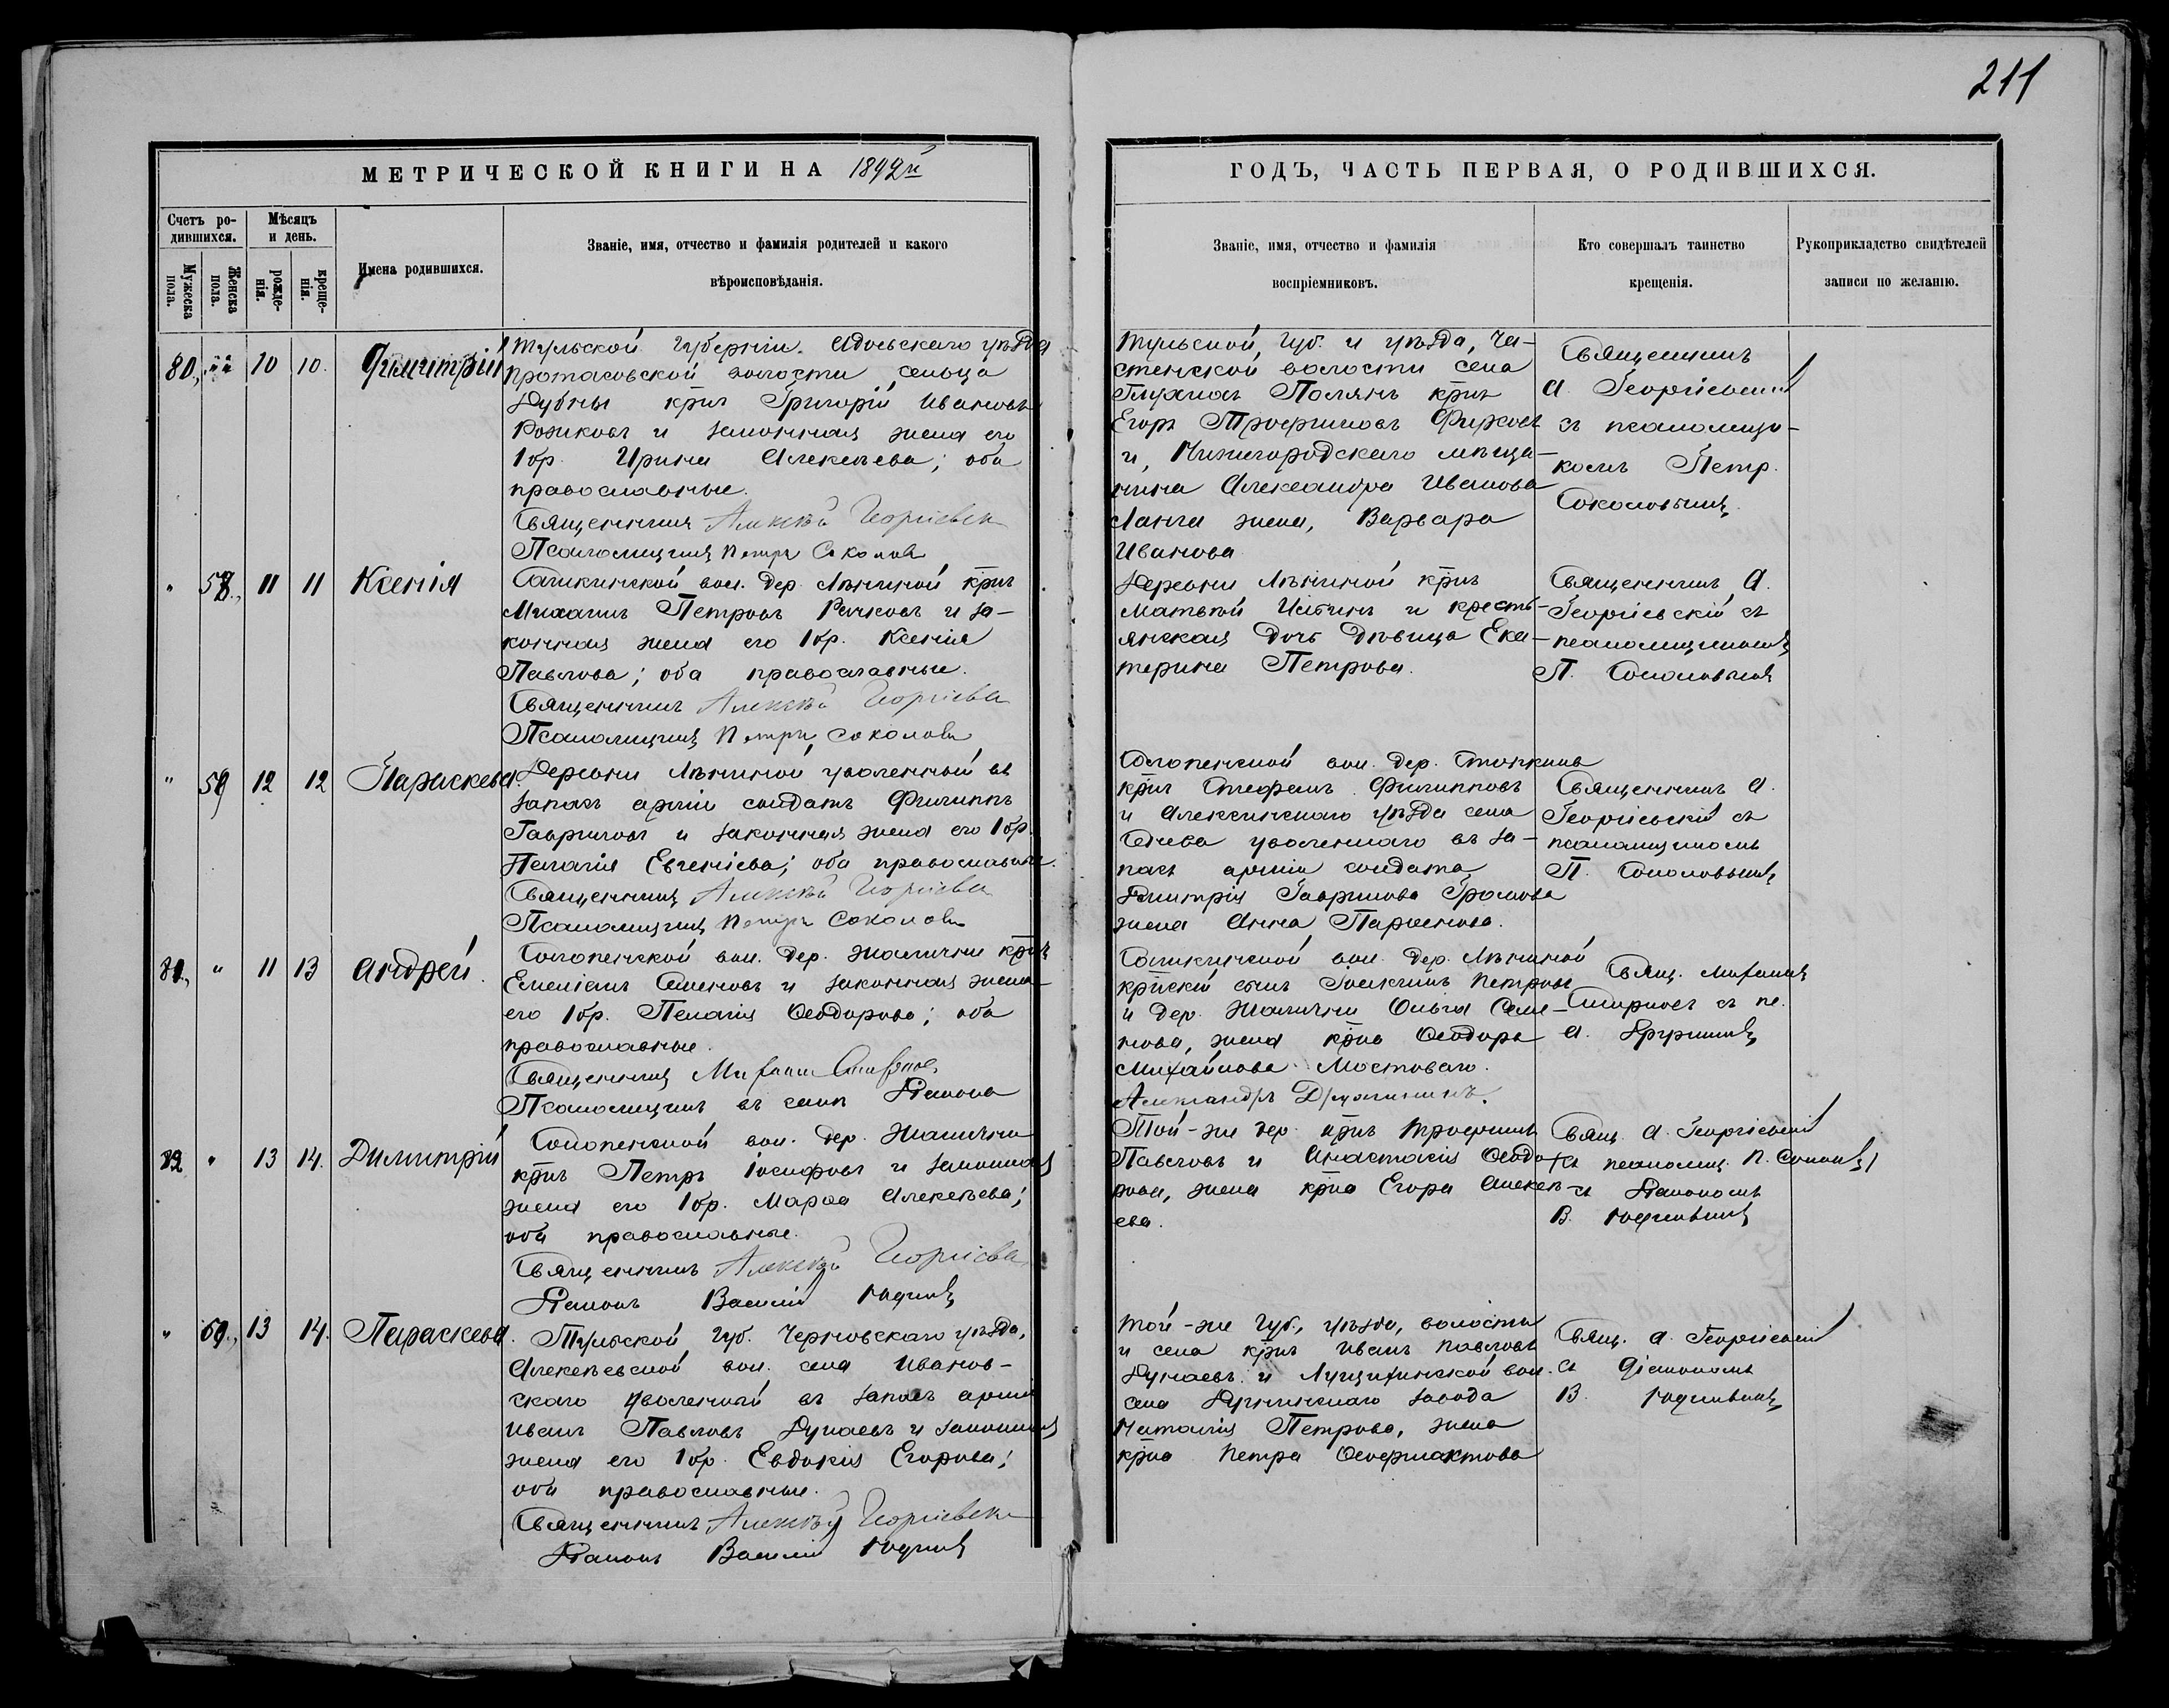 211
МЕТРИЧЕСКОЙ КНИГИ НА 1892й
ГОДЪ, ЧАСТЬ ПЕРВАЯ, О РОДИВШИХСЯ.
Счетъ ро-
дившихся.
Мужеска
пола.
Женска
пола.
Мѣсяцъ
и день.
рожде-
нія.
креще-
нія.
Имена родившихся.
Званіе, имя, отчество и фамилія родителей и какого
вѣроисповѣданія.
Званіе, имя, отчество и фамилія
воспріемниковъ.
Кто совершалъ таинство
крещенія.
Рукоприкладство свидѣтелей
записи по желанію.
80. 10 10.
Тульской губерніи. Одоевскаго уѣзда
Протасовской волости сельца
Дубны кр̃нъ Григорій Ивановъ
Рожковъ и законная жена его
1 бр. Ирина Алексѣева; оба
православные.
Священникъ Алексѣй Георгіевск
Псаломщикъ Петръ Соколовъ
Тульской, губ. и уѣзда, Ча-
стенской волости села
Глухихъ Полянъ кр̃нъ
Егоръ Трофимовъ
и, Нижегородскаго мѣща-
нина Александра Иванова
Ланга жена, Варвара
Иванова
Священникъ
А. Георгіевскій
съ псаломщи-
комъ Петр.
Соколовымъ
" 58. 11 11 Ксенія
вол. дер. Лѣниной кр̃нъ
Михаилъ Петровъ Рачковъ и за-
конная жена его 1 бр. Ксенія
Павлова; оба православные.
Священникъ Алексѣй Георгіевск
Псаломщикъ Петръ Соколовъ
Деревни Лѣниной кр̃нъ
Матвѣй и кресть-
янская дочь дѣвица Ека-
терина Петрова.
Священникъ А.
Георгіевскій съ
псаломщикомъ
П. Соколовымъ
" 59 12 12 Параскева.
Деревни Лѣниной уволенный въ
запасъ арміи солдатъ Филиппъ
Гавриловъ и законная жена его 1 бр.
Пелагія Евгеніева; оба православные.
Священникъ Алексѣй Георгіевск
Псаломщикъ Петръ Соколовъ
вол. дер.
кр̃нъ Стефанъ Филипповъ
и Алексинскаго уѣзда села
уволеннаго въ за-
пасъ арміи солдата
Димитрія Гаврилова Громова
жена Анна Парѳенова.
Священникъ А.
Георгіевскій съ
псаломщикомъ
П. Соколовымъ
81. " 11 13 Андрей.
вол. дер. кр̃нъ
Емеліанъ Семеновъ и законная жена
его 1 бр. Пелагія Ѳеодорова; оба
православные.
Священникъ Михаилъ Смирновъ
Псаломщикъ въ санѣ Діакона
Александръ
вол. дер. Лѣниной
кр̃нскій сынъ Іоакимъ Петровъ
и дер. Ольга Семе-
нова, жена кр̃на Ѳеодора
Михайлова Мостоваго.
Свящ. Михаилъ
Смирновъ съ пс.
А.
82. " 13 14. Димитрій
вол. дер.
кр̃нъ Петръ Іосифовъ и законная
жена его 1 бр. Марѳа Алексѣева;
оба православные.
Священникъ Алексѣй Георгіевск
Діаконъ Василій
Той-же дер. кр̃нъ Трофимъ
Павловъ и Анастасія Ѳеодо-
рова, жена кр̃на Егора Алексѣ-
ева.
Свящ. А. Георгіевскій
съ псаломщ. П. Сокол.
съ Діакономъ
В.
" 60. 13 14. Параскева.
Тульской губ. Чернскаго уѣзда,
Алексѣевской вол. села Иванов-
скаго уволенный въ запасъ арміи
Иванъ Павловъ Дунаевъ и законная
жена его 1 бр. Евдокія Егорова;
оба православные.
Священникъ Алексѣй Георгіевск
Діаконъ Василій
Той-же губ., уѣзда, волости
и села кр̃нъ Иванъ Павловъ
Дунаевъ и вол.
села завода
Наталія Петрова, жена
кр̃на Петра Ѳеофилактова
Свящ. А. Георгіевскій
съ Діакономъ
В.